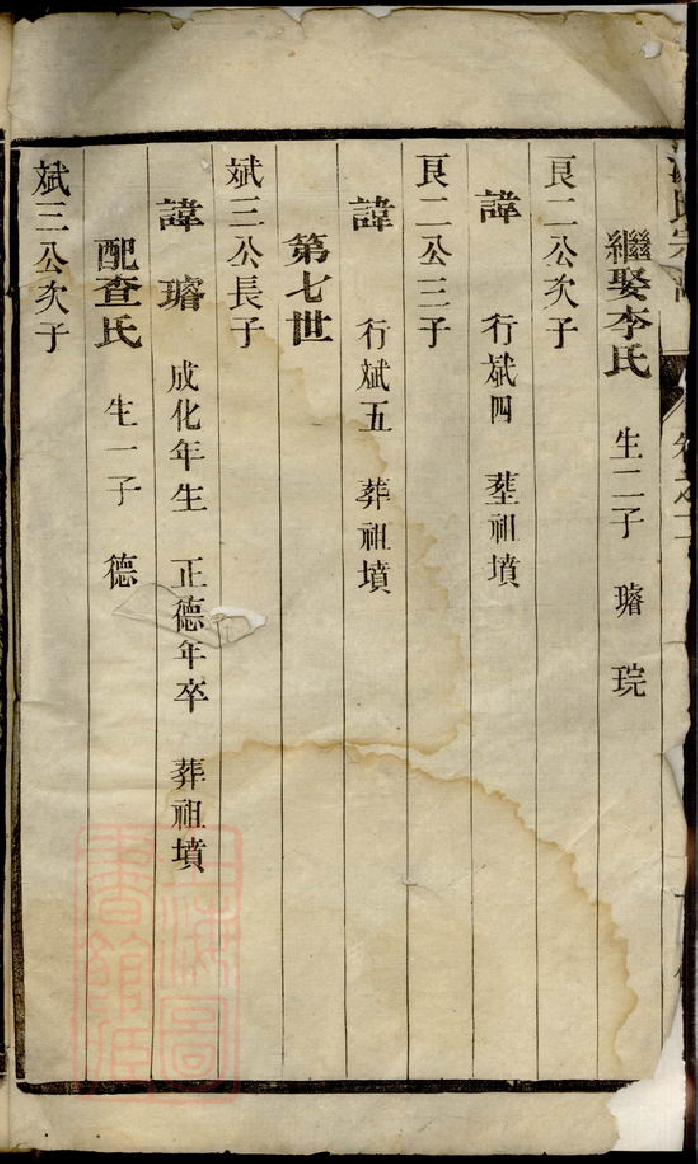 繼娶李氏 生二子 璿 琓
良二公次子
諱 行斌四 塟祖墳
良二公三子
諱 行斌五 葬祖墳
第七世
斌三公長子
諱璿 成化年生 正德年卒 葬祖墳
配查氏 生一子 德
斌三公次子
上海圖
書館藏